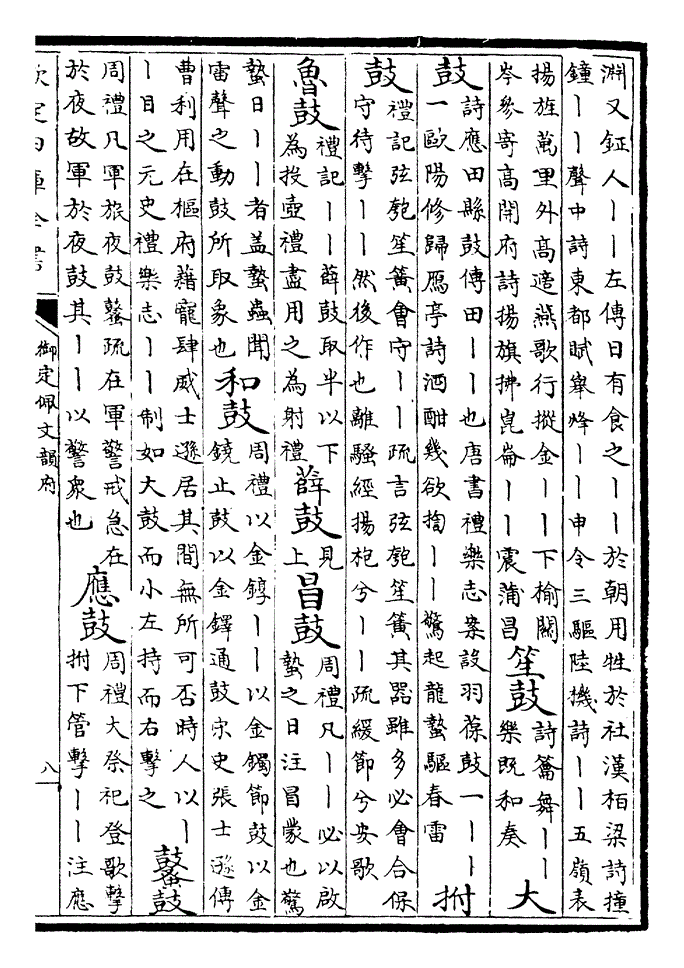 淵又鉦人丨丨左傳日有食之丨丨於朝用牲於社漢栢梁詩撞
鐘丨丨聲中詩東都賦舉烽丨丨申令三驅陸機詩丨丨五嶺表
揚旌萬里外高適燕歌行摐金丨丨下榆關
岑參寄高開府詩揚旗拂崑崙丨丨震蒲昌
笙鼓
詩籥舞丨丨
樂既和奏
大
鼓
詩應田縣鼓傳田丨丨也唐書禮樂志案設羽葆鼓一丨丨
一歐陽修歸鴈亭詩酒酣幾欲搯丨丨驚起龍蟄驅春雷
拊
鼓
禮記弦匏笙簧會守丨丨疏言弦匏笙簧其器雖多必會合保
守待擊丨丨然後作也離騷經揚枹兮丨丨疏緩節兮安歌
魯鼓
禮記丨丨薛鼓取半以下
為投壺禮盡用之為射禮
薛鼓
見
上
冒鼓
周禮凡丨丨必以啟
蟄之日注冒蒙也驚
蟄日丨丨者蓋蟄蟲聞
雷聲之動鼓所取象也
和鼓
周禮以金錞丨丨以金鐲節鼓以金
鐃止鼓以金鐸通鼓宋史張士遜傳
曹利用在樞府藉寵肆威士遜居其間無所可否時人以丨
丨目之元史禮樂志丨丨制如大鼓而小左持而右擊之
鼜鼓
周禮凡軍旅夜鼓鼜疏在軍警戒急在
於夜故軍於夜鼓其丨丨以警衆也
應鼓
周禮大祭祀登歌擊
拊下管擊丨丨注應
欽定四庫全書
御定佩文韻府
八